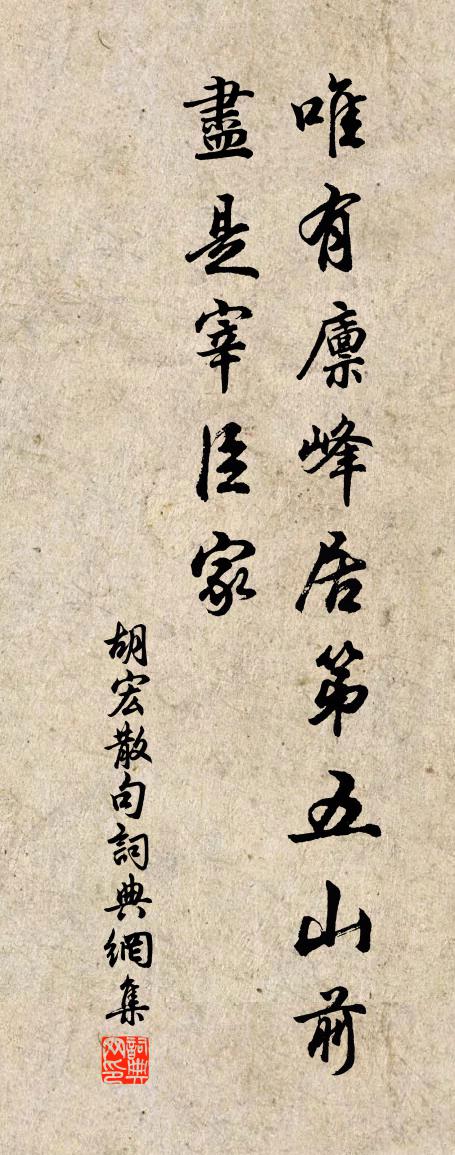 唯有廪峰居第五山前
盡是宰臣家
胡宏散句詞典網集
詞典网印